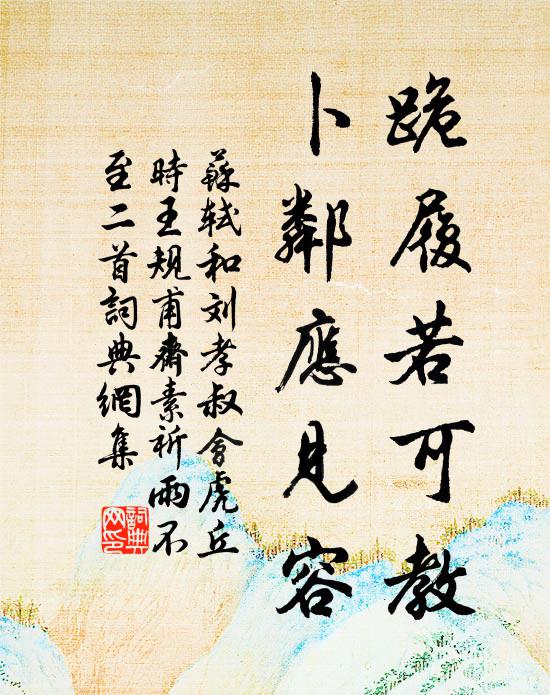 跪履若可教
卜鄰應見容
蘇軾和刘孝叔會虎丘
時王规甫齋素祈雨不
至二首詞典網集
詞典网印